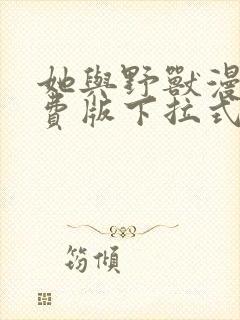 她與野獸漫
費版下拉式
筠傾